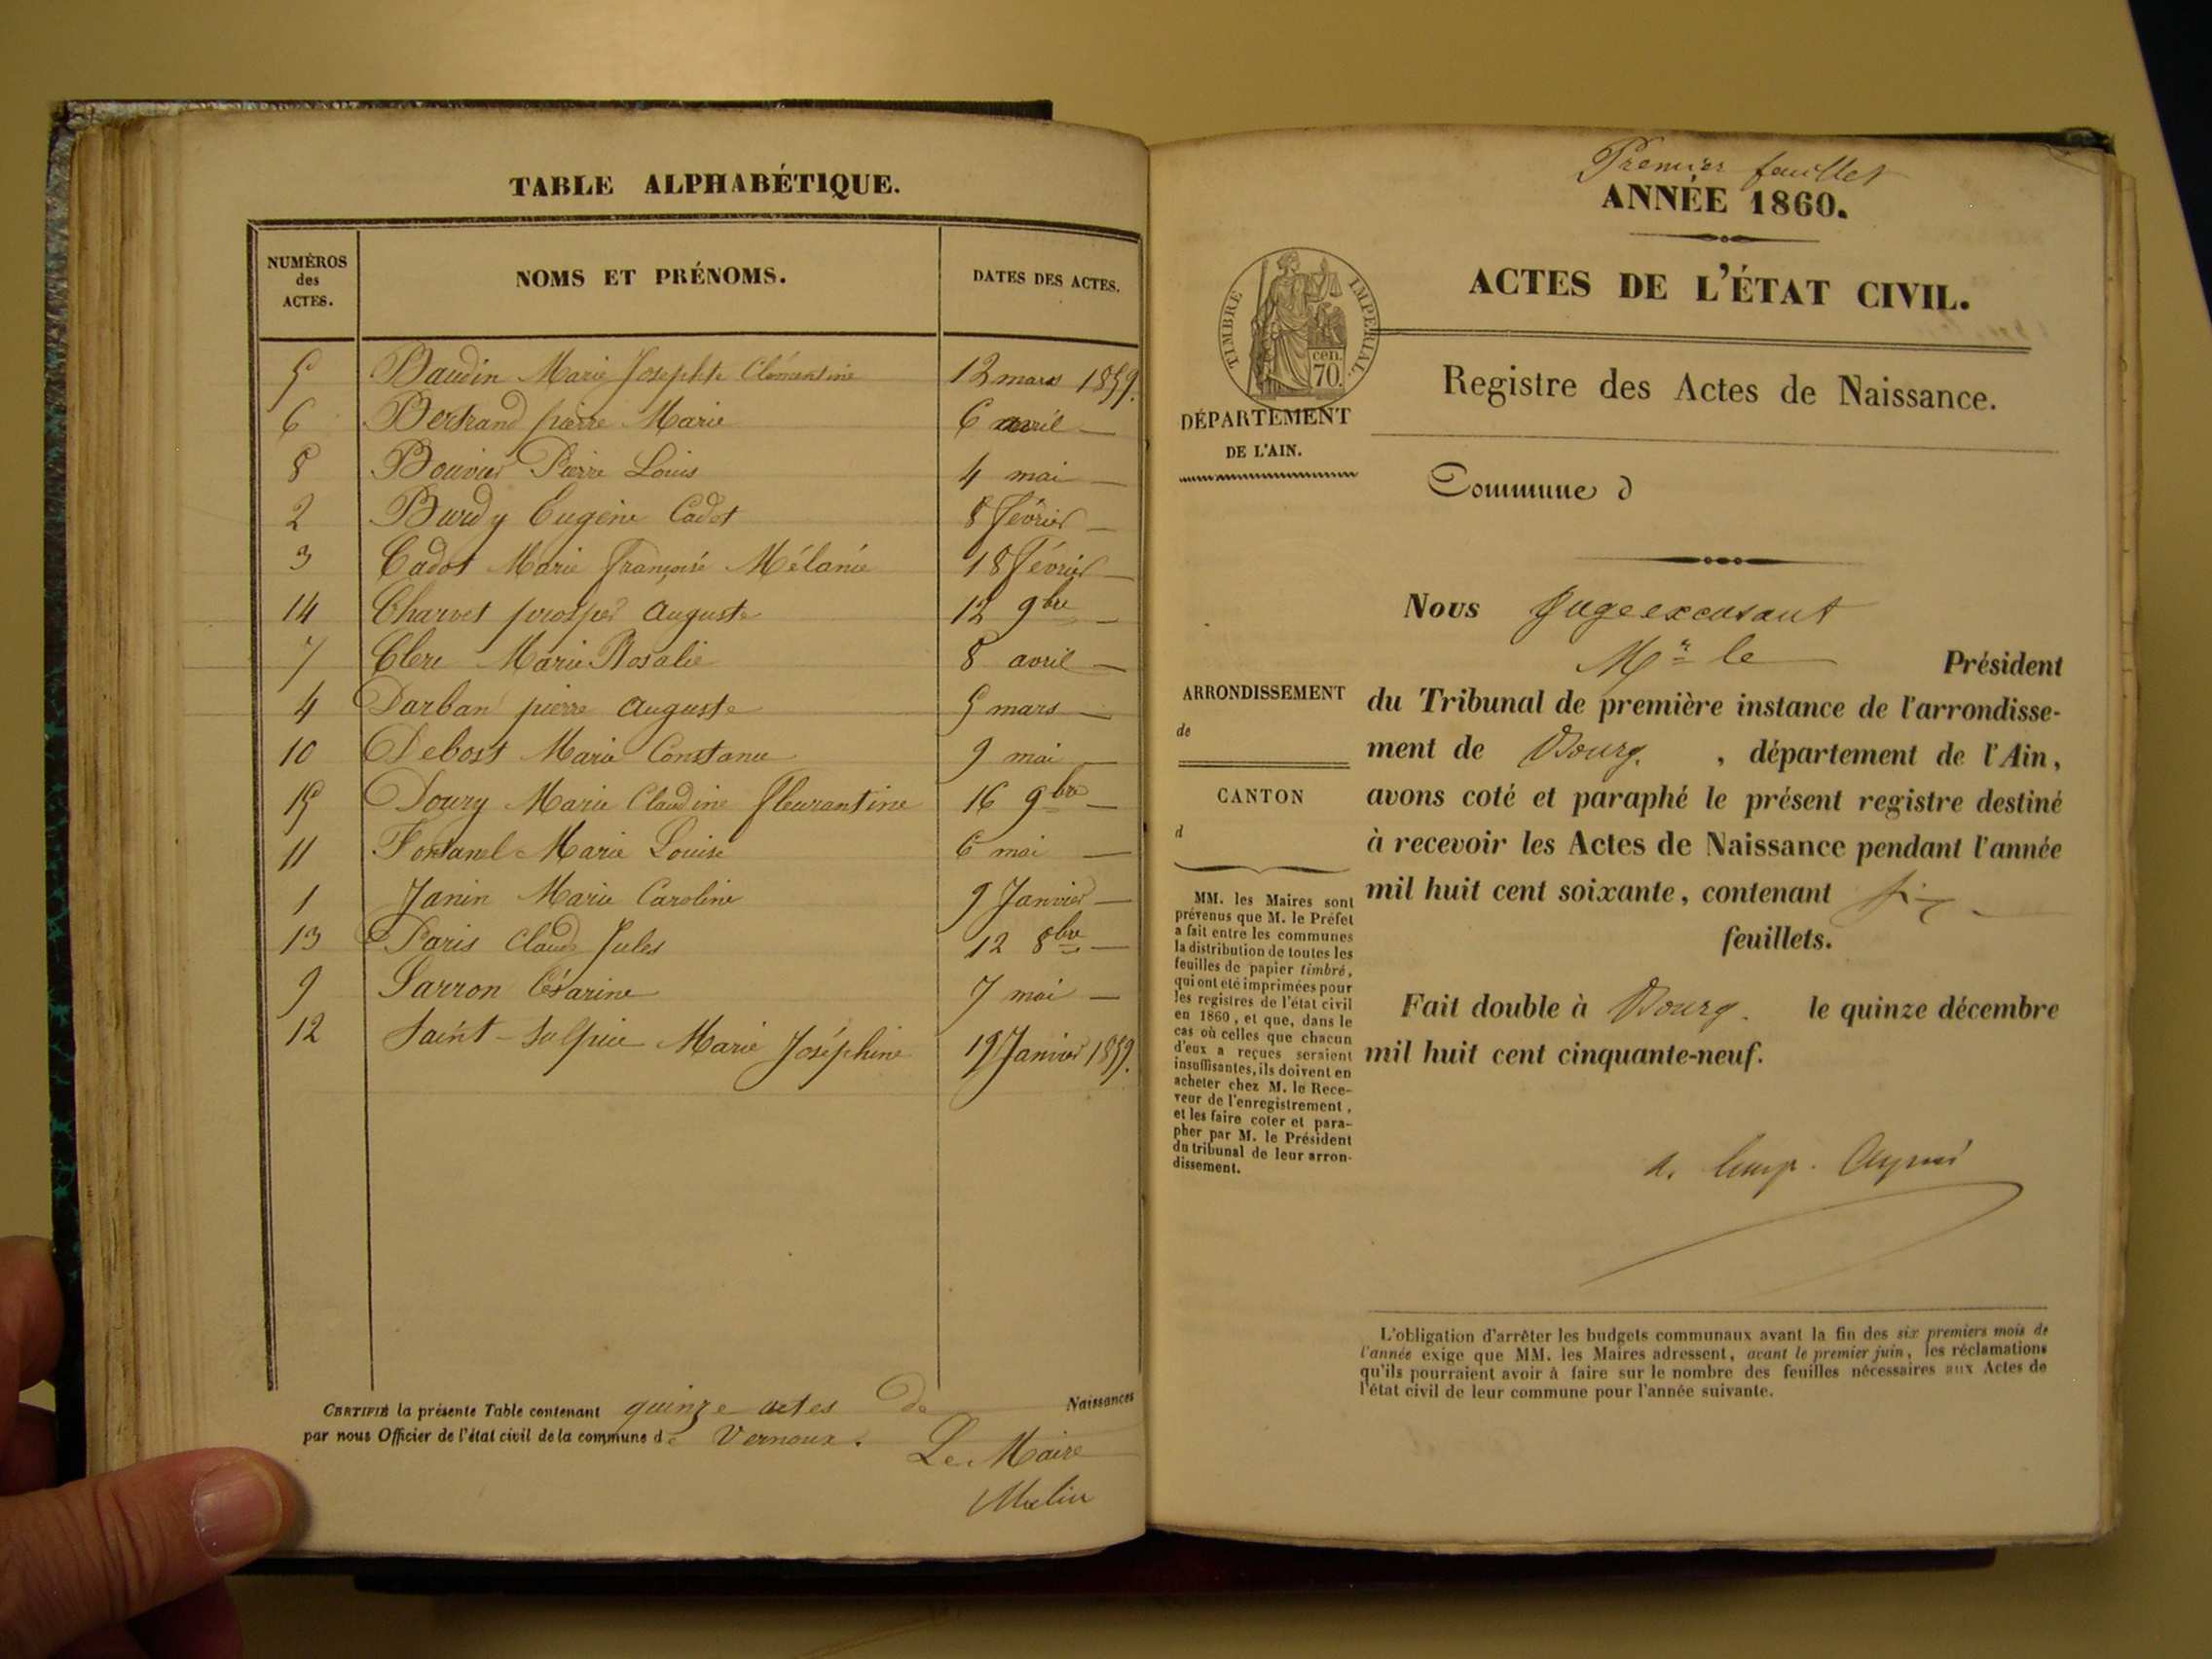 TABLE ALPHABÉTIQUE.
NUMÉROS des ACTES. NOMS ET PRÉNOMS. DATES DES ACTES.
5 Baudin Marie Josephte Clémentine 12 mars 1859.
6 Bertrand pierre Marie 6 avril —
8 Bouvier Pierre Louis 4 mai —
2 Burdy Eugène Cadet 8 février —
3 Cadot Marie Françoise Mélanie 18 Février —
14 Charvet prosper auguste 12 9bre —
7 Clerc Marie Rosalie 8 avril —
4 Darban pierre auguste 5 mars —
10 Debost Marie Constance 9 mai —
15 Doury Marie Claudine fleurantine 16 9bre —
11 Fontanel Marie Louise 6 mai —
1 Janin Marie Caroline 9 Janvier —
13 Paris Claude Jules 12 8bre —
9 Sarron Césarine 7 mai —
12 Saint-Sulpice Marie Joséphine 19 Janvier 1859.
CERTIFIÉ la présente Table contenant quinze actes de Naissances
par nous Officier de l'état civil de la commune de Vernoux.
Le Maire
Premier feuillet
ANNÉE 1860.
ACTES DE L'ÉTAT CIVIL.
TIMBRE IMPÉRIAL
cen.
70.
Registre des Actes de Naissance.
DÉPARTEMENT
DE L'AIN.
Commune d
Nous Juge excusant
Mr le Président
ARRONDISSEMENT
de
CANTON
d
du Tribunal de première instance de l'arrondisse-
ment de Bourg. , département de l'Ain,
avons coté et paraphé le présent registre destiné
à recevoir les Actes de Naissance pendant l'année
mil huit cent soixante, contenant six
feuillets.
Fait double à Bourg. le quinze décembre
mil huit cent cinquante-neuf.
MM. les Maires sont
prévenus que M. le Préfet
a fait entre les communes
la distribution de toutes les
feuilles de papier timbré,
qui ont été imprimées pour
les registres de l'état civil
en 1860, et que, dans le
cas où celles que chacun
d'eux a reçues seraient
insuffisantes, ils doivent en
acheter chez M. le Rece-
veur de l'enregistrement,
et les faire coter et para-
pher par M. le Président
du tribunal de leur arron-
dissement.
L'obligation d'arrêter les budgets communaux avant la fin des six premiers mois de
l'année exige que MM. les Maires adressent, avant le premier juin, les réclamations
qu'ils pourraient avoir à faire sur le nombre des feuilles nécessaires aux Actes de
l'état civil de leur commune pour l'année suivante.